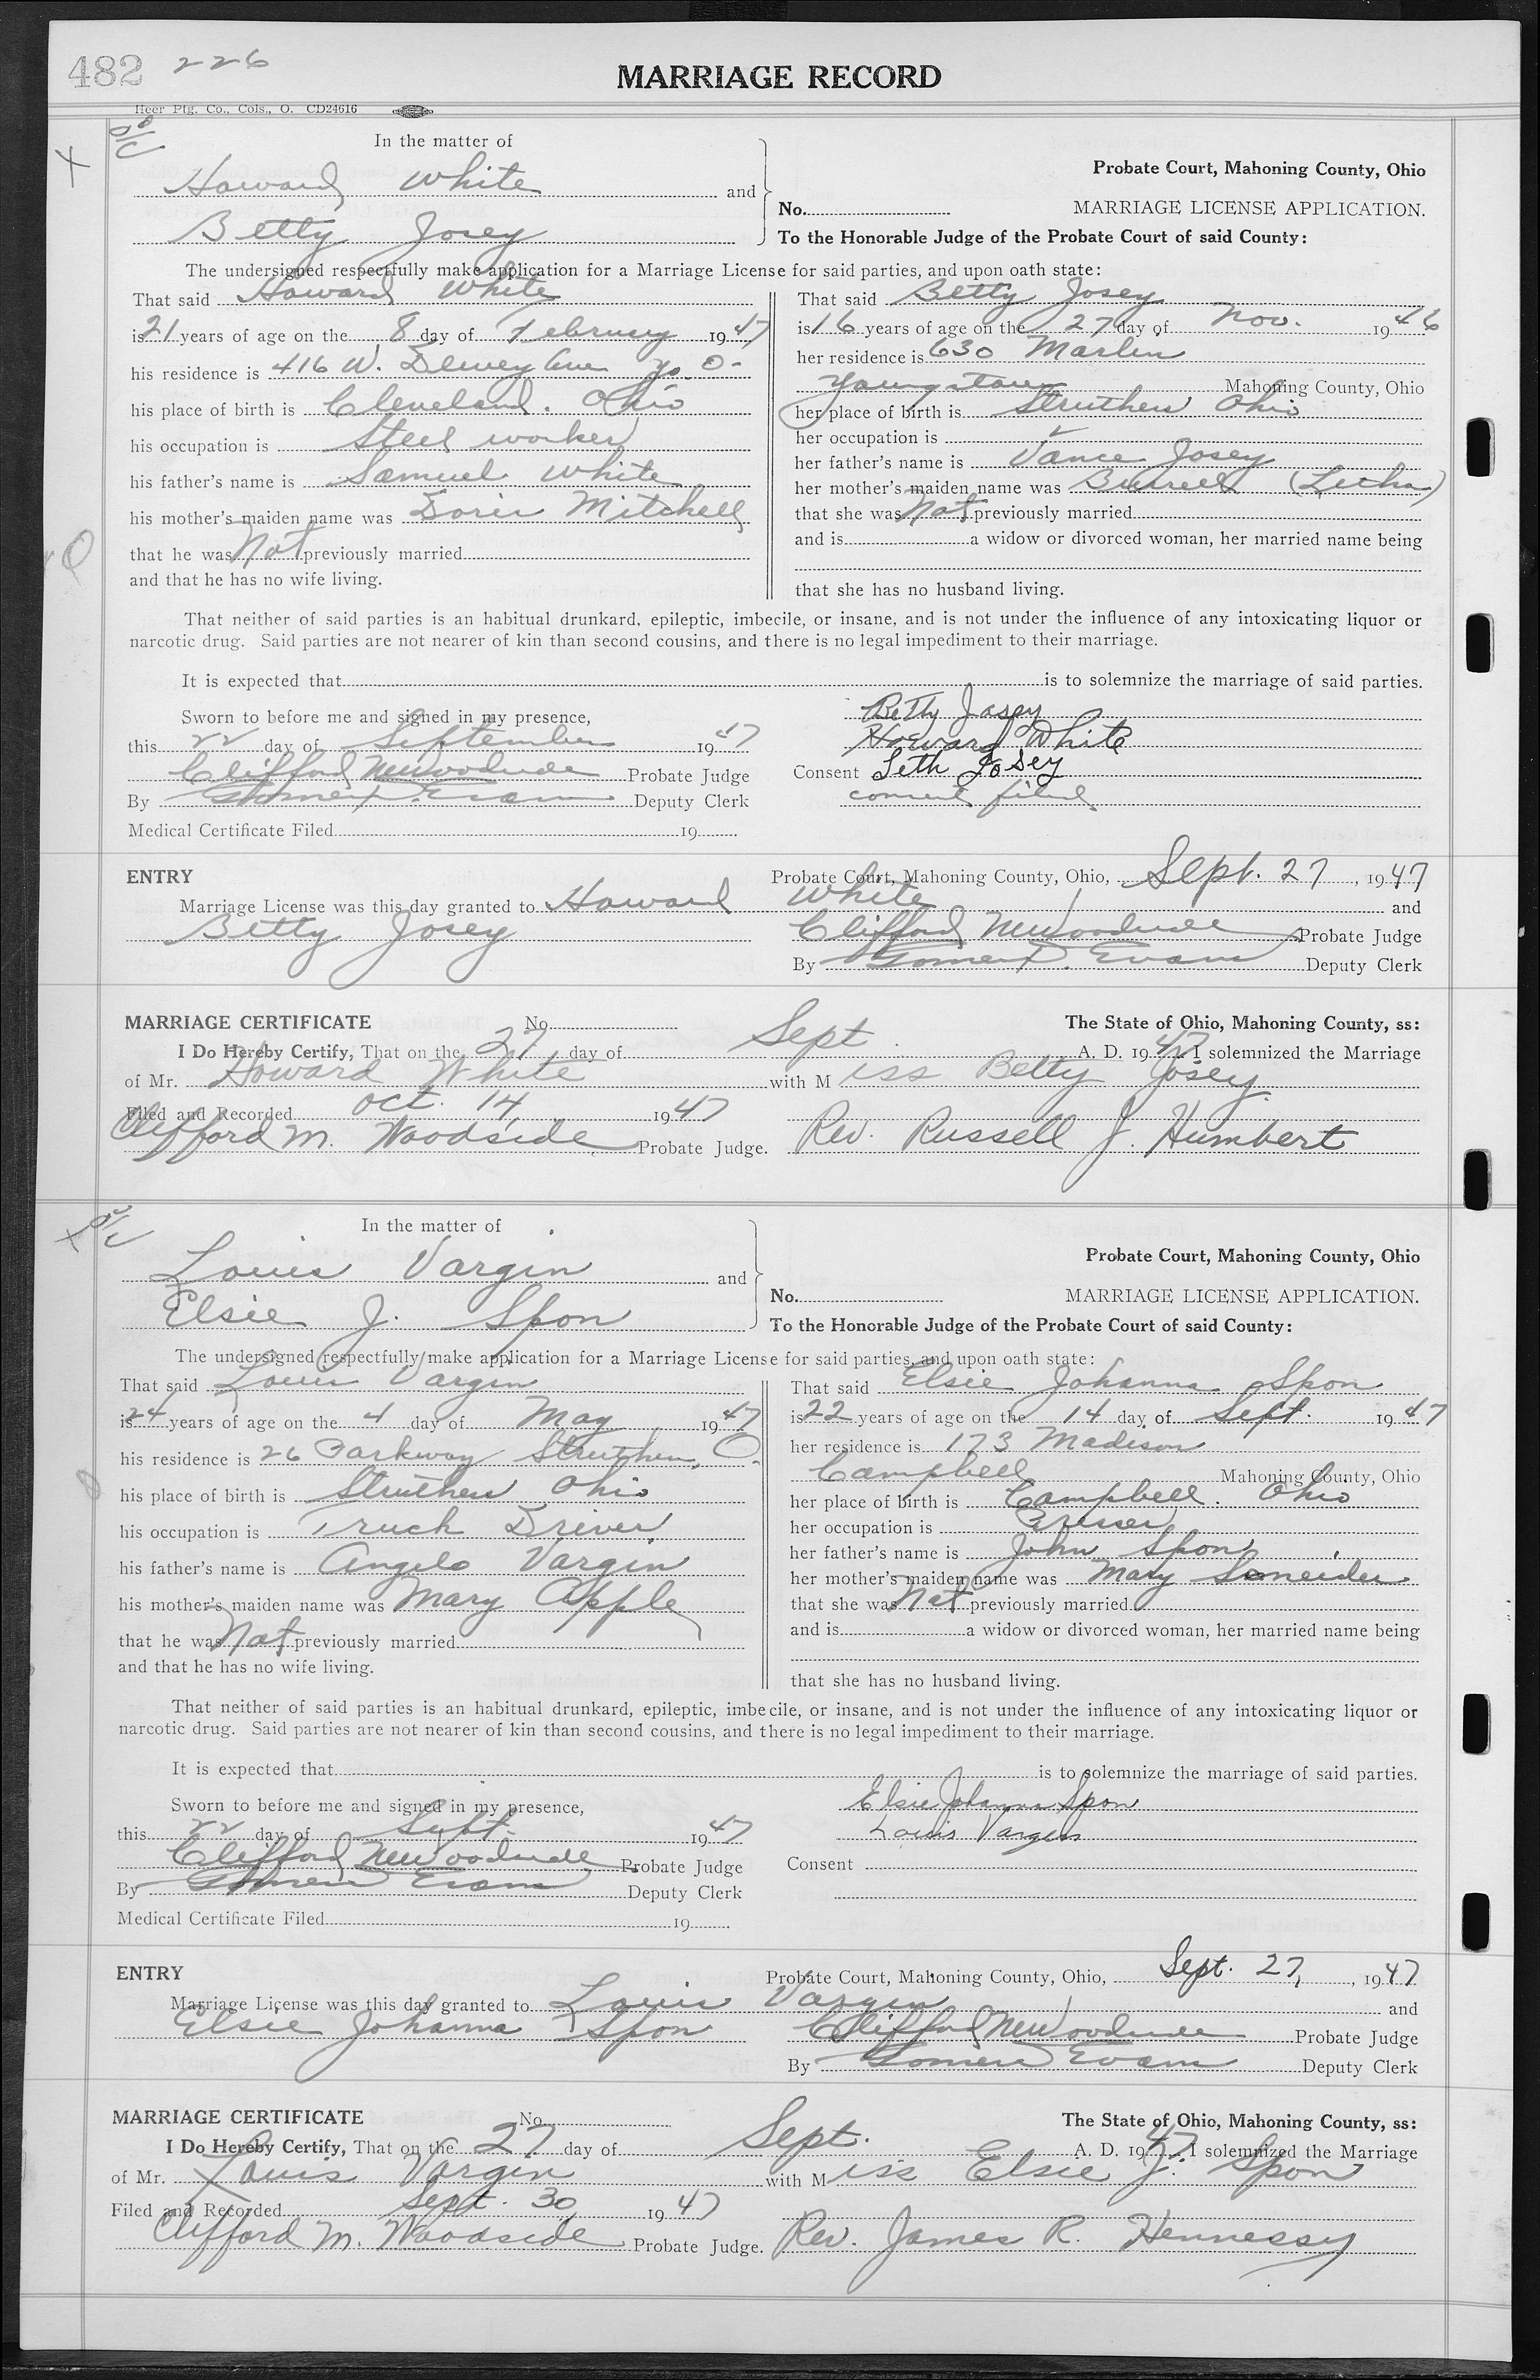 482 226
MARRIAGE RECORD
Heer Ptg. Co., Cols., O. CD24616
In the matter of
Howard White and
Betty Josey
Probate Court, Mahoning County, Ohio
No. MARRIAGE LICENSE APPLICATION.
To the Honorable Judge of the Probate Court of said County:
The undersigned respectfully make application for a Marriage License for said parties, and upon oath state:
That said Howard White
is 21 years of age on the 8 day of February 1947
his residence is 416 W. Dewey Ave Yo. O.
his place of birth is Cleveland. Ohio
his occupation is Steel worker
his father's name is Samuel White
his mother's maiden name was Doris Mitchell
that he was Not previously married
and that he has no wife living.
That said Betty Josey
is 16 years of age on the 27 day of Nov. 1946
her residence is 630 Marlin
Youngstown Mahoning County, Ohio
her place of birth is Struthers Ohio
her occupation is
her father's name is Vance Josey
her mother's maiden name was Burrell (Letha)
that she was Not previously married
and is a widow or divorced woman, her married name being
that she has no husband living.
That neither of said parties is an habitual drunkard, epileptic, imbecile, or insane, and is not under the influence of any intoxicating liquor or
narcotic drug. Said parties are not nearer of kin than second cousins, and there is no legal impediment to their marriage.
It is expected that is to solemnize the marriage of said parties.
Sworn to before me and signed in my presence,
this 22 day of September 1947
Clifford M Woodside Probate Judge
By Evans Deputy Clerk
Medical Certificate Filed 19
Betty Josey
Howard White
Consent Leth Josey
consent filed
ENTRY Probate Court, Mahoning County, Ohio, Sept. 27, 1947
Marriage License was this day granted to Howard White and
Betty Josey Clifford M Woodside Probate Judge
By Evans Deputy Clerk
MARRIAGE CERTIFICATE No. The State of Ohio, Mahoning County, ss:
I Do Hereby Certify, That on the 27 day of Sept A. D. 1947 I solemnized the Marriage
of Mr. Howard White with Miss Betty Josey
Filed and Recorded Oct. 14, 1947
Clifford M. Woodside Probate Judge. Rev. Russell J. Humbert
In the matter of
Louis Vargin and
Elsie J. Spon
Probate Court, Mahoning County, Ohio
No. MARRIAGE LICENSE APPLICATION.
To the Honorable Judge of the Probate Court of said County:
The undersigned respectfully make application for a Marriage License for said parties, and upon oath state:
That said Louis Vargin
is 24 years of age on the 4 day of May 1947
his residence is 26 Parkway Struthers, O.
his place of birth is Struthers Ohio
his occupation is Truck Driver
his father's name is Angelo Vargin
his mother's maiden name was Mary Apple
that he was Not previously married
and that he has no wife living.
That said Elsie Johanna Spon
is 22 years of age on the 14 day of Sept. 1947
her residence is 173 Madison
Campbell Mahoning County, Ohio
her place of birth is Campbell. Ohio
her occupation is Presser
her father's name is John Spon
her mother's maiden name was Mary
that she was Not previously married
and is a widow or divorced woman, her married name being
that she has no husband living.
That neither of said parties is an habitual drunkard, epileptic, imbecile, or insane, and is not under the influence of any intoxicating liquor or
narcotic drug. Said parties are not nearer of kin than second cousins, and there is no legal impediment to their marriage.
It is expected that is to solemnize the marriage of said parties.
Sworn to before me and signed in my presence,
this 22 day of Sept. 1947
Clifford M Woodside Probate Judge
By Evans Deputy Clerk
Medical Certificate Filed 19
Elsie Johanna Spon
Louis Vargin
Consent
ENTRY Probate Court, Mahoning County, Ohio, Sept. 27, 1947
Marriage License was this day granted to Louis Vargin and
Elsie Johanna Spon Clifford M Woodside Probate Judge
By Evans Deputy Clerk
MARRIAGE CERTIFICATE No. The State of Ohio, Mahoning County, ss:
I Do Hereby Certify, That on the 27 day of Sept. A. D. 1947 I solemnized the Marriage
of Mr. Louis Vargin with Miss Elsie J. Spon
Filed and Recorded Sept. 30, 1947
Clifford M. Woodside Probate Judge. Rev. James R. Hennessy